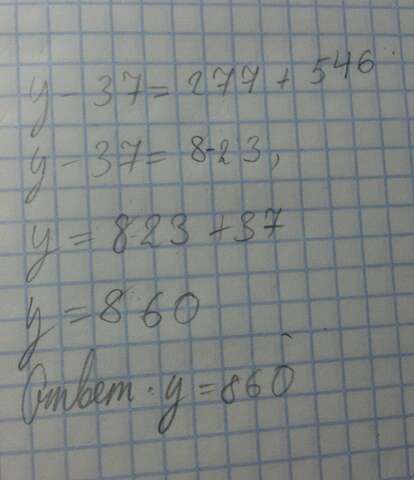 y - 37 = 277 + 546
y - 37 = 823,
y = 823 + 37
y = 860
Ответ: y = 860